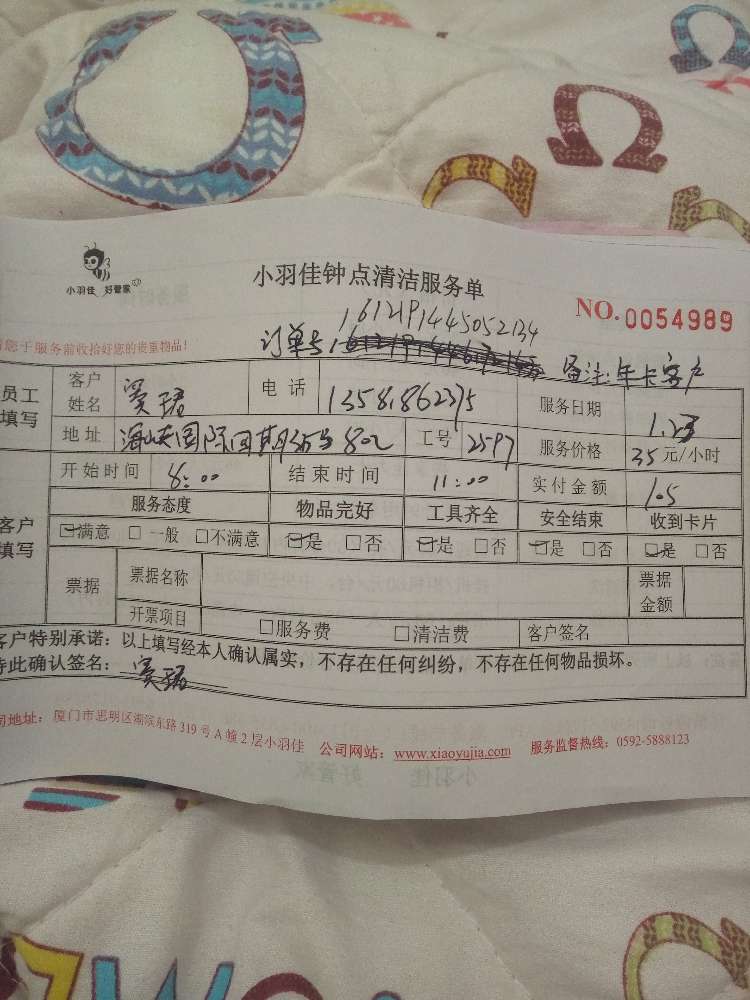 小羽佳 好管家
小羽佳钟点清洁服务单
NO. 0054989
您于服务前收拾好您的贵重物品!
订单号 1612191445052134
备注:年卡客户
员工填写 客户姓名 窦珺 电话 13581862375 服务日期 1.23
地址 海峡国际 802 工号 2597 服务价格 35元/小时
开始时间 8:00 结束时间 11:00 实付金额 105
客户填写 服务态度 物品完好 工具齐全 安全结束 收到卡片
☑满意 □一般 □不满意 ☑是 □否 ☑是 □否 ☑是 □否 ☑是 □否
票据 票据名称 票据金额
开票项目 □服务费 □清洁费 客户签名
客户特别承诺:以上填写经本人确认属实,不存在任何纠纷,不存在任何物品损坏。
特此确认签名:窦珺
司地址:厦门市思明区湖滨东路319号A幢2层小羽佳 公司网站:www.xiaoyujia.com 服务监督热线:0592-5888123